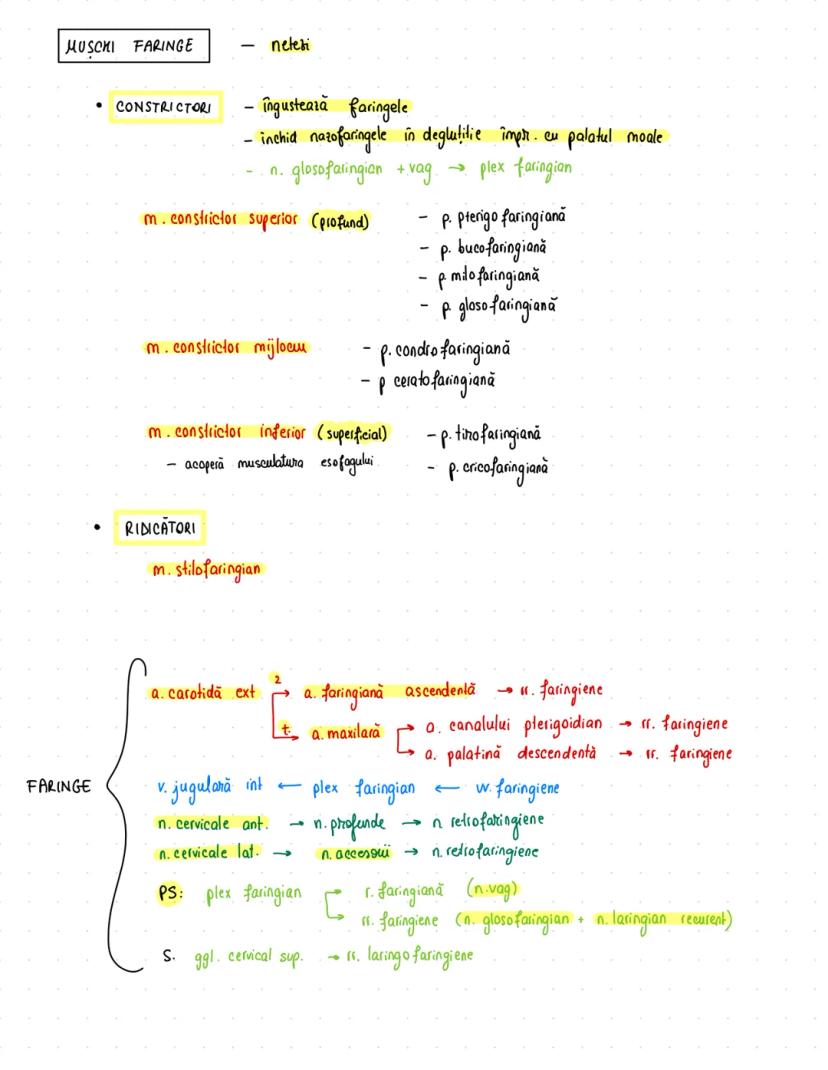 MUȘCHI FARINGE – netezi
• CONSTRICTORI – îngustează faringele
– închid nazofaringele în deglutiție împr. cu palatul moale
– n. glosofaringian + vag → plex faringian
m. constrictor superior (profund) – p. pterigofaringiană
– p. bucofaringiană
– p. milofaringiană
– p. glosofaringiană
m. constrictor mijlociu – p. condrofaringiană
– p ceratofaringiană
m. constrictor inferior (superficial) – p. tirofaringiană
– acoperă musculatura esofagului – p. cricofaringiană
• RIDICĂTORI
m. stilofaringian
a. carotidă ext 2 → a. faringiană ascendentă → rr. faringiene
t. → a. maxilară → a. canalului pterigoidian → rr. faringiene
→ a. palatină descendentă → rr. faringiene
FARINGE
v. jugulară int ← plex faringian ← vv. faringiene
n. cervicale ant. → n. profunde → n retrofaringiene
n. cervicale lat. → n. accesorii → n. retrofaringiene
PS: plex faringian → r. faringiană (n. vag)
→ rr. faringiene (n. glosofaringian + n. laringian recurent)
S. ggl. cervical sup. → rr. laringofaringiene